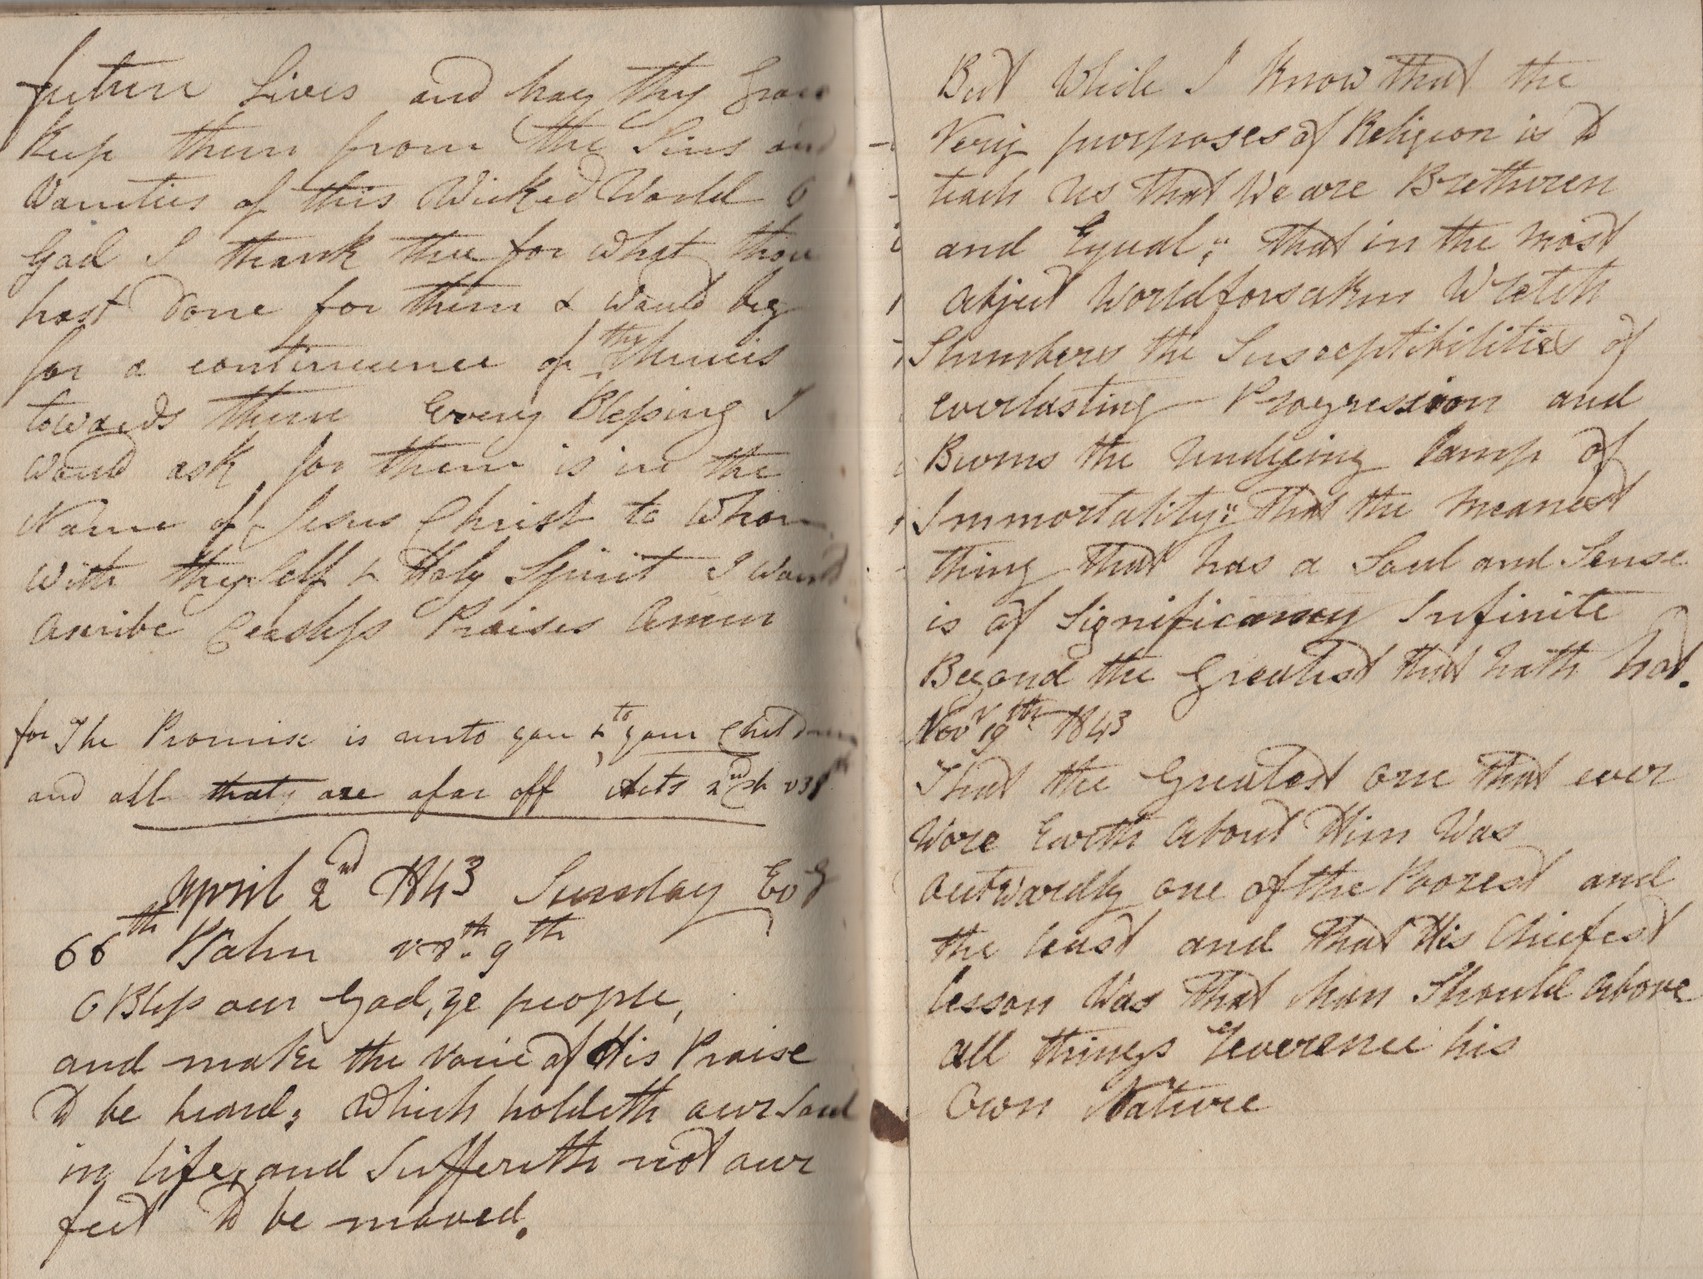 future Lives and may thy Grace
Keep them from the Sins and
Vanities of this Wicked World O
God I thank thee for what thou
hast done for them & would beg
for a continuence of thy Mercies
towards them Every Blessing I
would ask for them is in the
Name of Jesus Christ to Whom
with thy Self & Holy Spirit I would
ascribe Ceasless Praises Amen
for The Promise is unto you & to your Children
and all that are afar off Acts 2nd Ch v 39th
April 2nd 1843 Sunday Evg
66th Psalm v 8th 9th
O Bless our God, ye people,
and make the voice of His Praise
to be heard; Which holdeth our Soul
in life, and Suffereth not our
feet to be moved.
But While I Know that the
Very purposes of Religion is to
teach us that We are Brethren
and Equal; that in the most
Abject World forsaken Wretch
Slumbers the Susceptibilities of
everlasting Progression and
Burns the Undyeing Lamp of
Immortality; that the meanest
thing that has a Soul and Sense
is of Significancy Infinite
Beyond the Greatest that hath Not.
Novr 19th 1843
That the Greatest one that ever
Wore Earth about Him Was
outwardly one of the Poorest and
the least and that His Chiefest
lesson Was that Man Should above
all things reverence his
Own Nature